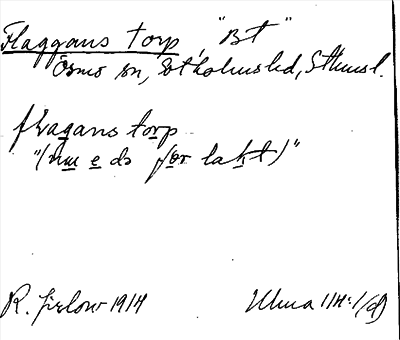 Flaggans torp, "Bt"
Ösmo sn, Sotholms hd, Sthmsl.
flagans torp
"(nu e dο för lakt)"
R. Jirlow 1914
Ulma 114:1/(d)